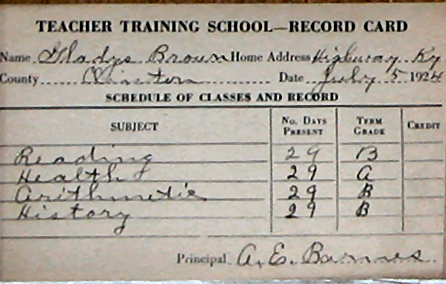 TEACHER TRAINING SCHOOL—RECORD CARD
Name Gladys Brown Home Address Highway Ky
County Clinton Date July 5 1924
SCHEDULE OF CLASSES AND RECORD
SUBJECT No. DAYS PRESENT TERM GRADE CREDIT
Reading 29 B
Health 29 A
Arithmetic 29 B
History 29 B
Principal A. E. Barnes